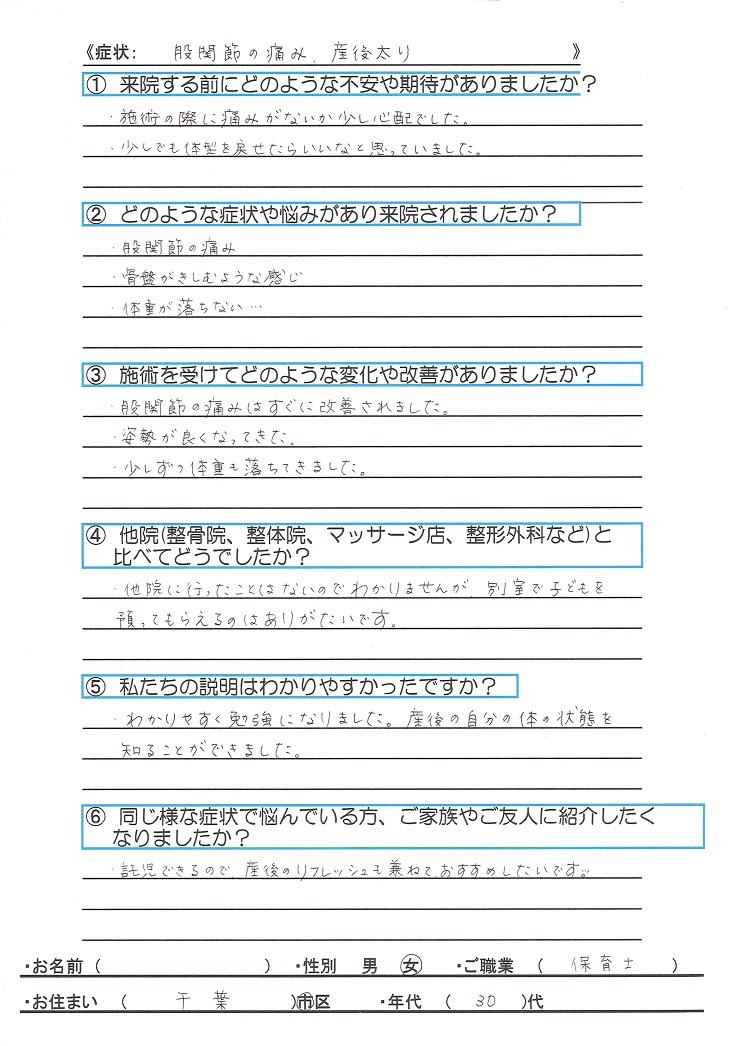 《症状： 股関節の痛み、産後太り 》
① 来院する前にどのような不安や期待がありましたか？
・施術の際に痛みがないか少し心配でした。
・少しでも体型を戻せたらいいなと思っていました。
② どのような症状や悩みがあり来院されましたか？
・股関節の痛み
・骨盤がきしむような感じ
・体重が落ちない…
③ 施術を受けてどのような変化や改善がありましたか？
・股関節の痛みはすぐに改善されました。
・姿勢が良くなってきた。
・少しずつ体重も落ちてきました。
④ 他院(整骨院、整体院、マッサージ店、整形外科など)と
比べてどうでしたか？
・他院に行ったことはないのでわかりませんが、別室で子どもを
預ってもらえるのはありがたいです。
⑤ 私たちの説明はわかりやすかったですか？
・わかりやすく勉強になりました。産後の自分の体の状態を
知ることができました。
⑥ 同じ様な症状で悩んでいる方、ご家族やご友人に紹介したく
なりましたか？
・託児できるので、産後のリフレッシュも兼ねて、おすすめしたいです。
・お名前（ ） ・性別 男 女 ・ご職業 （ 保育士 ）
・お住まい （ 千葉 ）市区 ・年代 （ 30 ）代